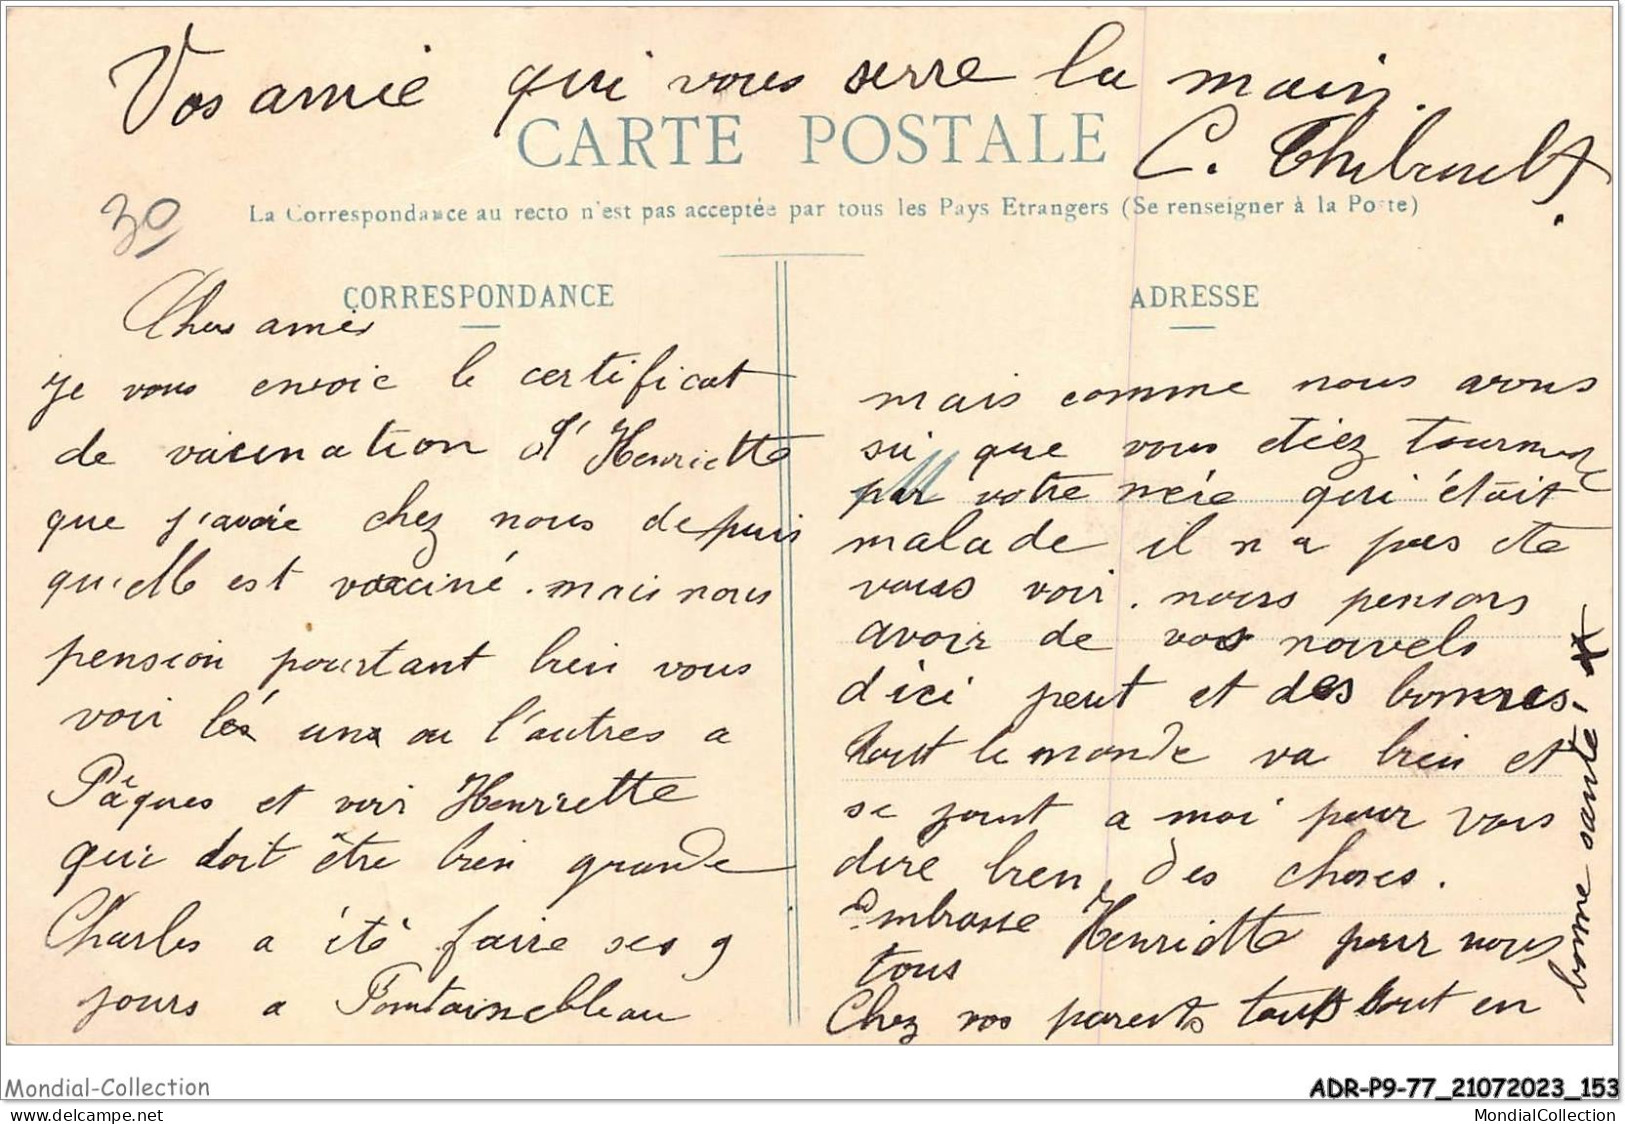 Vos amie qui vous serre la main.
C. Thibault.
CARTE POSTALE
30
La Correspondance au recto n'est pas acceptée par tous les Pays Etrangers (Se renseigner à la Poste)
CORRESPONDANCE
Chers amis
Je vous envoie le certificat
de vaicination d'Henriette
que j'avaie chez nous depuis
qu'elle est vacciné. mais nous
pension pourtant bien vous
voir les uns ou l'autres a
Pâques et voir Henriette
qui doit être bien grande
Charles a été faire ses 9
jours a Fontainebleau
ADRESSE
mais comme nous avons
sû que vous etiez tourmente
par votre mère qui était
malade il n a pas ete
vous voir. nous pensons
avoir de vos nouvels
d'ici peut et des bonnes.
tout le monde va bien et
se joint a moi pour vous
dire bien des choses.
embrasse Henriette pour nous
tous
Chez vos parents tout tout en
bonne santé. X
Mondial-Collection
ADR-P9-77_21072023_153
www.delcampe.net
MondialCollection